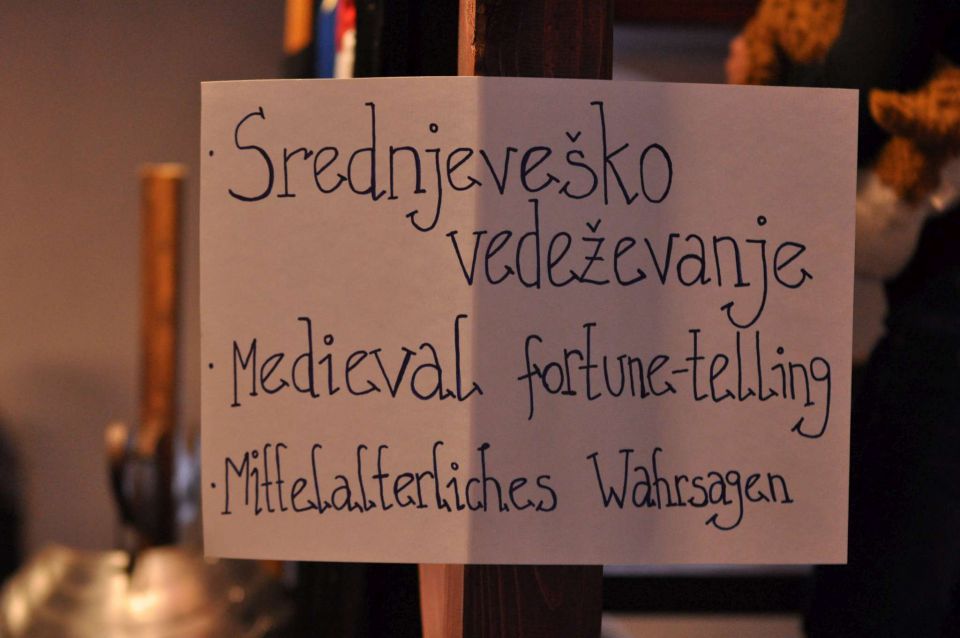 · Srednjeveško
vedeževanje
· Medieval fortune-telling
· Mittelalterliches Wahrsagen